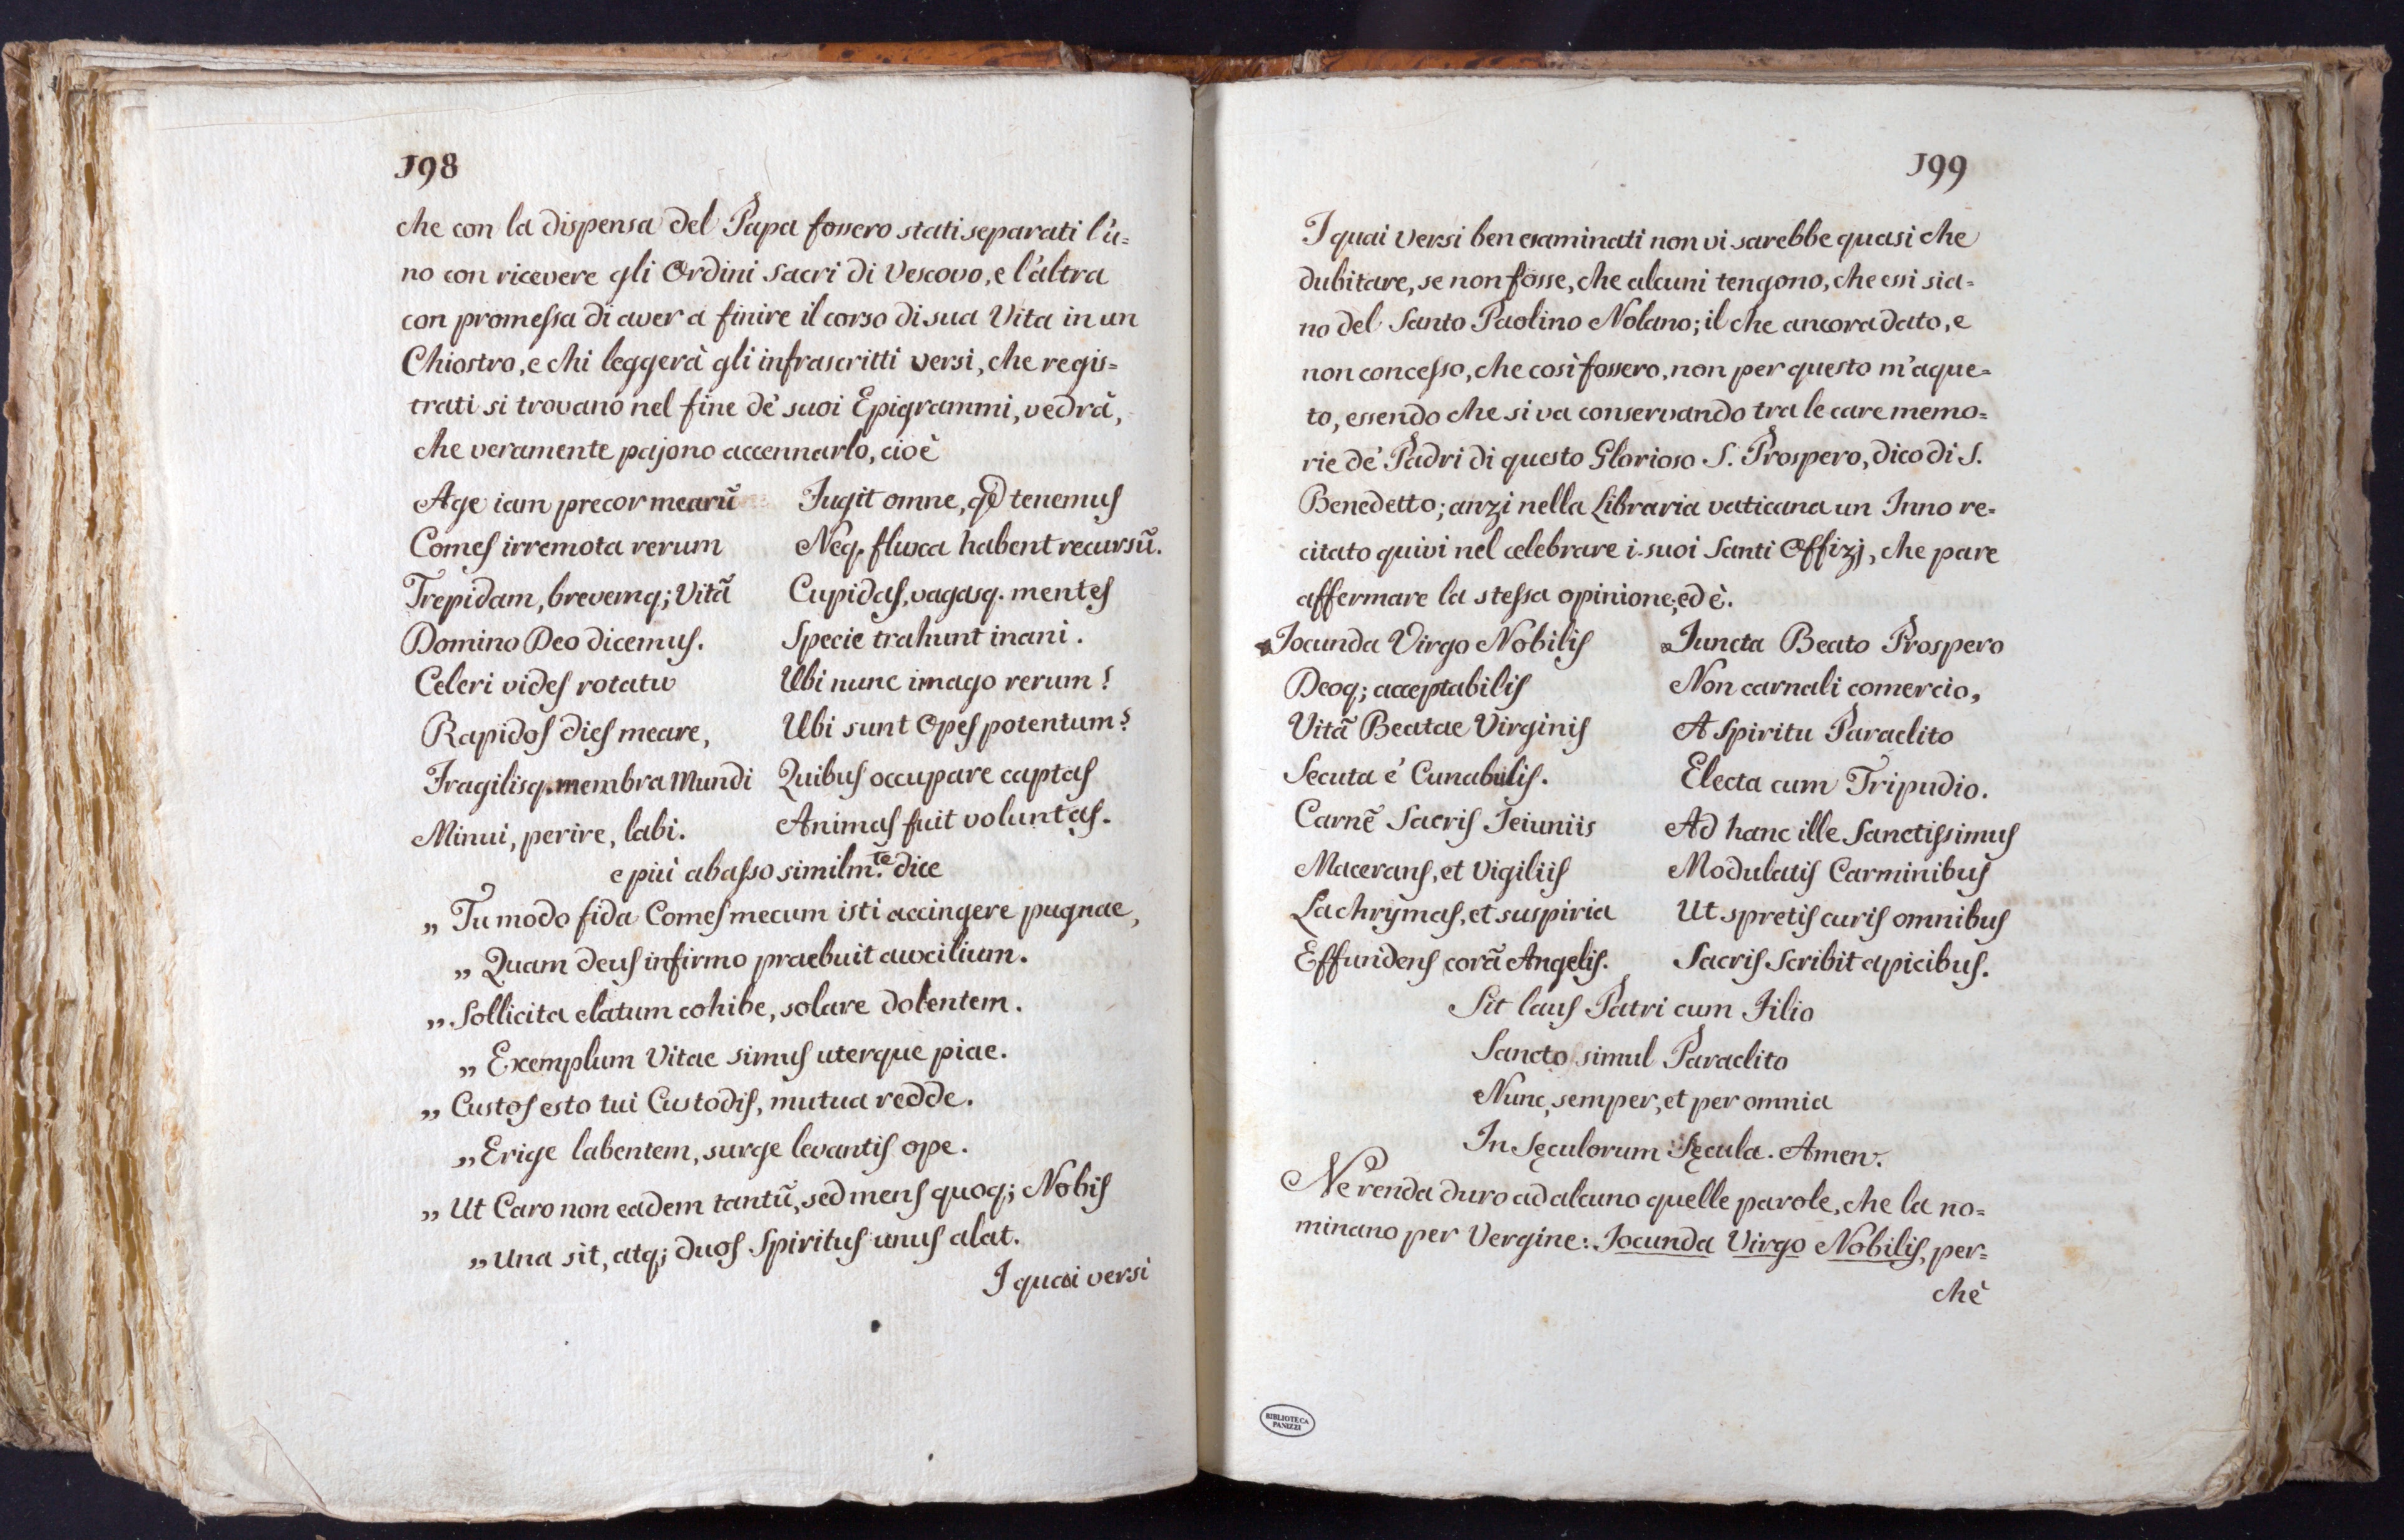 198
che con la dispensa del Papa fossero stati separati l'u=
no con ricevere gli Ordini Sacri di Vescovo, e l'altra
con promessa di aver a finire il corso di sua Vita in un
Chiostro, e chi leggerà gli infrascritti versi, che regis=
trati si trovano nel fine de' suoi Epigrammi, vedrà,
che veramente pajono accennarlo, cioè
Age iam precor mearũ
Comes irremota rerum
Trepidam, brevemq; Vitã
Domino Deo dicemus.
Celeri vides rotatu
Rapidos dies meare,
Fragilisq. membra Mundi
Minui, perire, labi.
Fugit omne, qd tenemus
Neq. fluxa habent recursũ.
Cupidas, vagasq. mentes
Specie trahunt inani.
Ubi nunc imago rerum?
Ubi sunt Opes potentum?
Quibus occupare captas
Animas fuit voluntas.
e più abasso similm.te dice
„ Tu modo fida Comes mecum isti accingere pugnae,
„ Quam deus infirmo praebuit auxilium.
„ Sollicita elatum cohibe, solare dolentem.
„ Exemplum Vitae simus uterque piae.
„ Custos esto tui Custodis, mutua redde.
„ Erige labentem, surge levantis ope.
„ Ut Caro non eadem tantũ, sed mens quoq; Nobis
„ Una sit, atq; duos Spiritus unus alat.
I quai versi
199
I quai Versi ben esaminati non vi sarebbe quasi che
dubitare, se non fosse, che alcuni tengono, che essi sia=
no del Santo Paolino Nolano; il che ancora dato, e
non concesso, che così fossero, non per questo m'aque=
to, essendo che si va conservando tra le care memo=
rie de' Padri di questo Glorioso S. Prospero, dico di S.
Benedetto; anzi nella Libraria vaticana un Inno re=
citato quivi nel celebrare i suoi Santi Offizj, che pare
affermare la stessa opinione, ed è.
Jocunda Virgo Nobilis
Deoq; acceptabilis
Vitã Beatae Virginis
Secuta é Cunabulis.
Carnẽ Sacris Jeiuniis
Macerans, et Vigiliis
Lachrymas, et suspiria
Effundens corã Angelis.
Juncta Beato Prospero
Non carnali comercio,
A Spiritu Paraclito
Electa cum Tripudio.
Ad hanc ille Sanctissimus
Modulatis Carminibus
Ut spretis curis omnibus
Sacris Scribit apicibus.
Sit laus Patri cum Filio
Sancto simul Paraclito
Nunc, semper, et per omnia
In Sęculorum Sęcula. Amen.
Ne renda duro ad alcuno quelle parole, che la no=
minano per Vergine: Jocunda Virgo Nobilis, per=
chè
BIBLIOTECA
PANIZZI